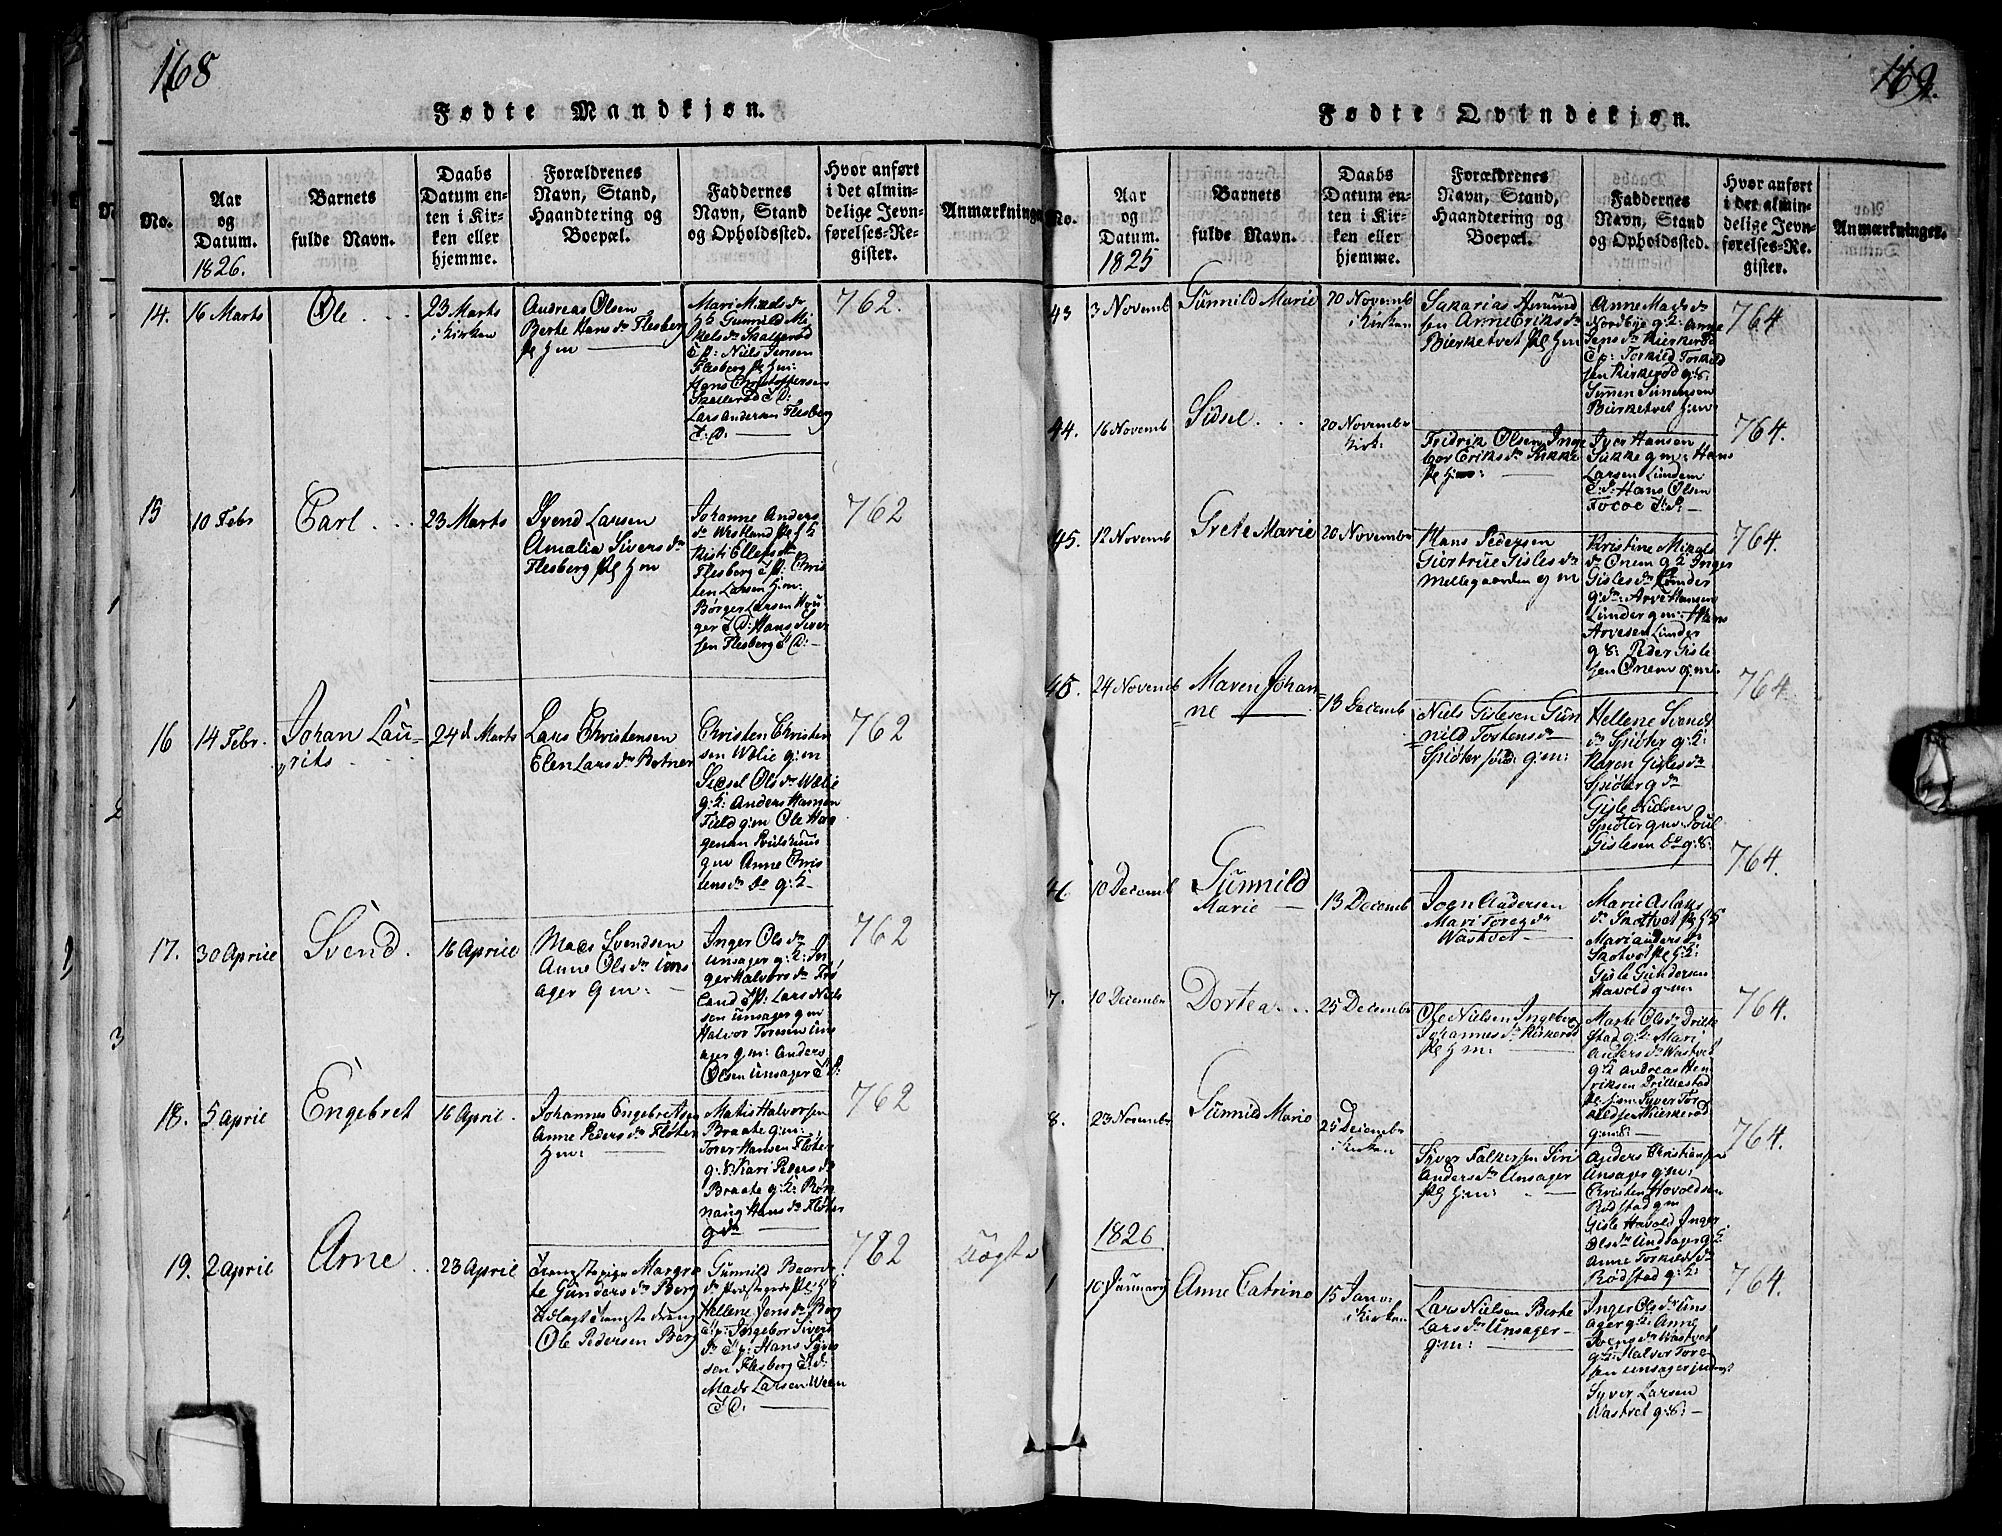 168
Fødte Mandkjøn.
No.
Aar
og
Datum.
1826.
Barnets
fulde Navn.
Daabs
Datum en-
ten i Kir-
ken eller
hjemme.
Forældrenes
Navn, Stand,
Haandtering og
Boepæl.
Faddernes
Navn, Stand
og Opholdssted.
Hvor anført
i det almin-
delige Jevn-
førelses-Re-
gister.
Anmærkninger
14.
16 Marts
Ole
23 Marts
i Kirken
Andreas Olsen
Berte Hans dr Flesberg
Gunnild Mi
kels dr Skallerød
Niels Jensen
Flesberg
Hans Christoffersen
Skallerød
Lars Andersen Flesberg
762.
15
10 Febr
Carl
23 Marts
Svend Larsen
Amalia Sivers dr
Flesberg
Johanne Anders
Flesberg
ten Larsen
Børger Larsen
ger Hans Siver
sen Flesberg
762
16
14 Febr.
Johan Lau-
rits
24d Marts
Lars Christensen
Elen Lars dr Botner
Christen Christen
sen Wølie g:m
Sidsel Ols dr Wølie
g:2: Anders Hansen
g:m Ole Haa
gensen
g:m Anne Chris
tens dr do g:2-
762
17.
30 Aprile
Svend.
16 Aprile
Mads Svendsen
Anne Ols dr Uns
ager g:m:
Inger Ols dr
Unsager g:2: In
ger Halvors dr Frø
land Lars Niels
sen Unsager g:m
Halvor Toresen Uns
ager g:m: Anders
Olsen Unsager
762
18.
5 April
Engebret
16 April.
Johannes Engebretsen
Anne Peders dr Fløter
Matis Halvorsen
Braate g:m:
Torer Hansen Fløter
g:8 Kari Peders dr
Braate g:2: Røn
naug Hans dr Fløter
762
19.
2 April
Arne
23 April
Margre
te Gunders dr Berg
Ole Pedersen Berg
Gunnild Baars
Hellene Jens dr Berg
Ingebor Sivert
Hans Syver
sen Flesberg
Mads Larsen Ween
762
Uægte
169.
Fødte Qvindekjøn.
No.
Aar
og
Datum.
1825
Barnets
fulde Navn.
Daabs
Datum en-
ten i Kir-
ken eller
hjemme.
Forældrenes
Navn, Stand,
Haandtering og
Boepæl.
Faddernes
Navn, Stand
og Opholdssted.
Hvor anført
i det almin-
delige Jevn-
førelses-Re-
gister.
Anmærkninger.
43
3 Novemb
Gunnild Marie
20 Novemb
i Kirken
Sakarias Amund
sen Anne Eriks dr
Bierketvet
Anne Mads dr
Nordbye g:2: Anne
Jens dr Kierkerød
Torkild Torkild
sen Kirkerød g:8:
Simen Simensen
Bierketvet
764
44.
16 Novemb
Sidsel
20 Novembr
Kirk:
Fridrik Olsen Inge
bor Eriks dr Sukke
Iver Hansen
Sukke g:m: Hans
Larsen Lundem
Hans Olsen
764.
45.
12 Novemb
Grete Marie
20 Novembr
Hans Pedersen
Giertrue Gisles dr
Mellegaarden g m
Kristine Mikels
dr Onem g 2 Inger
Gisles dr Lunder
g:dr: Arve Hansen
Lunder g:m: Hans
Arvesen Lunder
g 8: Peder Gisle
sen Onem g:m:
764.
45.
24 Novemb
Maren Johan
ne
13 Decemb
Niels Gislesen Gun
nild Torstens dr
Spiøter g:m:
Hellene Svends
dr Spiøter g:2:
Karen Gisles dr
Spiøter g dr
Gisle Nielsen
Spiøter g:m: Poul
Gislesen do g:8:
764.
46
10 Decemb
Gunnild
Marie
13 Decemb
Joen Andersen
Mari Tores dr
Wastvet
Marie Aslaks
dr Skottvet
Mari Anders dr
Skotvet
Gisle Gundersen
Havold g:m
764.
7.
10 Decembr
Dortea
25 Decembr
Ole Nielsen Ingebor
Johannes dr Kirkerød
Marte Ols dr Drille
stad g:2: Mari
Anders dr Wastvet
g:2 Andreas Hen
riksen Drillestad
Syver Tor
kildsen Kierkerød
764.
8.
23 Novembr
Gunnild Marie
25 Decembr
i Kirken
Syver Falkersen Siri
Anders dr Unsager
Anders Christiansen
Unsager g:m:
Christen Hovoldsen
Rødstad g:m
Gisle Havold Inger
Ols dr Undsager g:2
Anne Torkilds dr
Rødstad g:2:
764.
1826
1
10 Januarij
Anne Catrine
15 Janv:
i Kirken
Lars Nielsen Berte
Lars dr Unsager
g:m:
Inger Ols dr Uns
ager g:2: Anne
Svens dr Wastvet
g:2: Halvor Tore
sen Unsager
Syver Larsen
Wastvet g:8:
764.